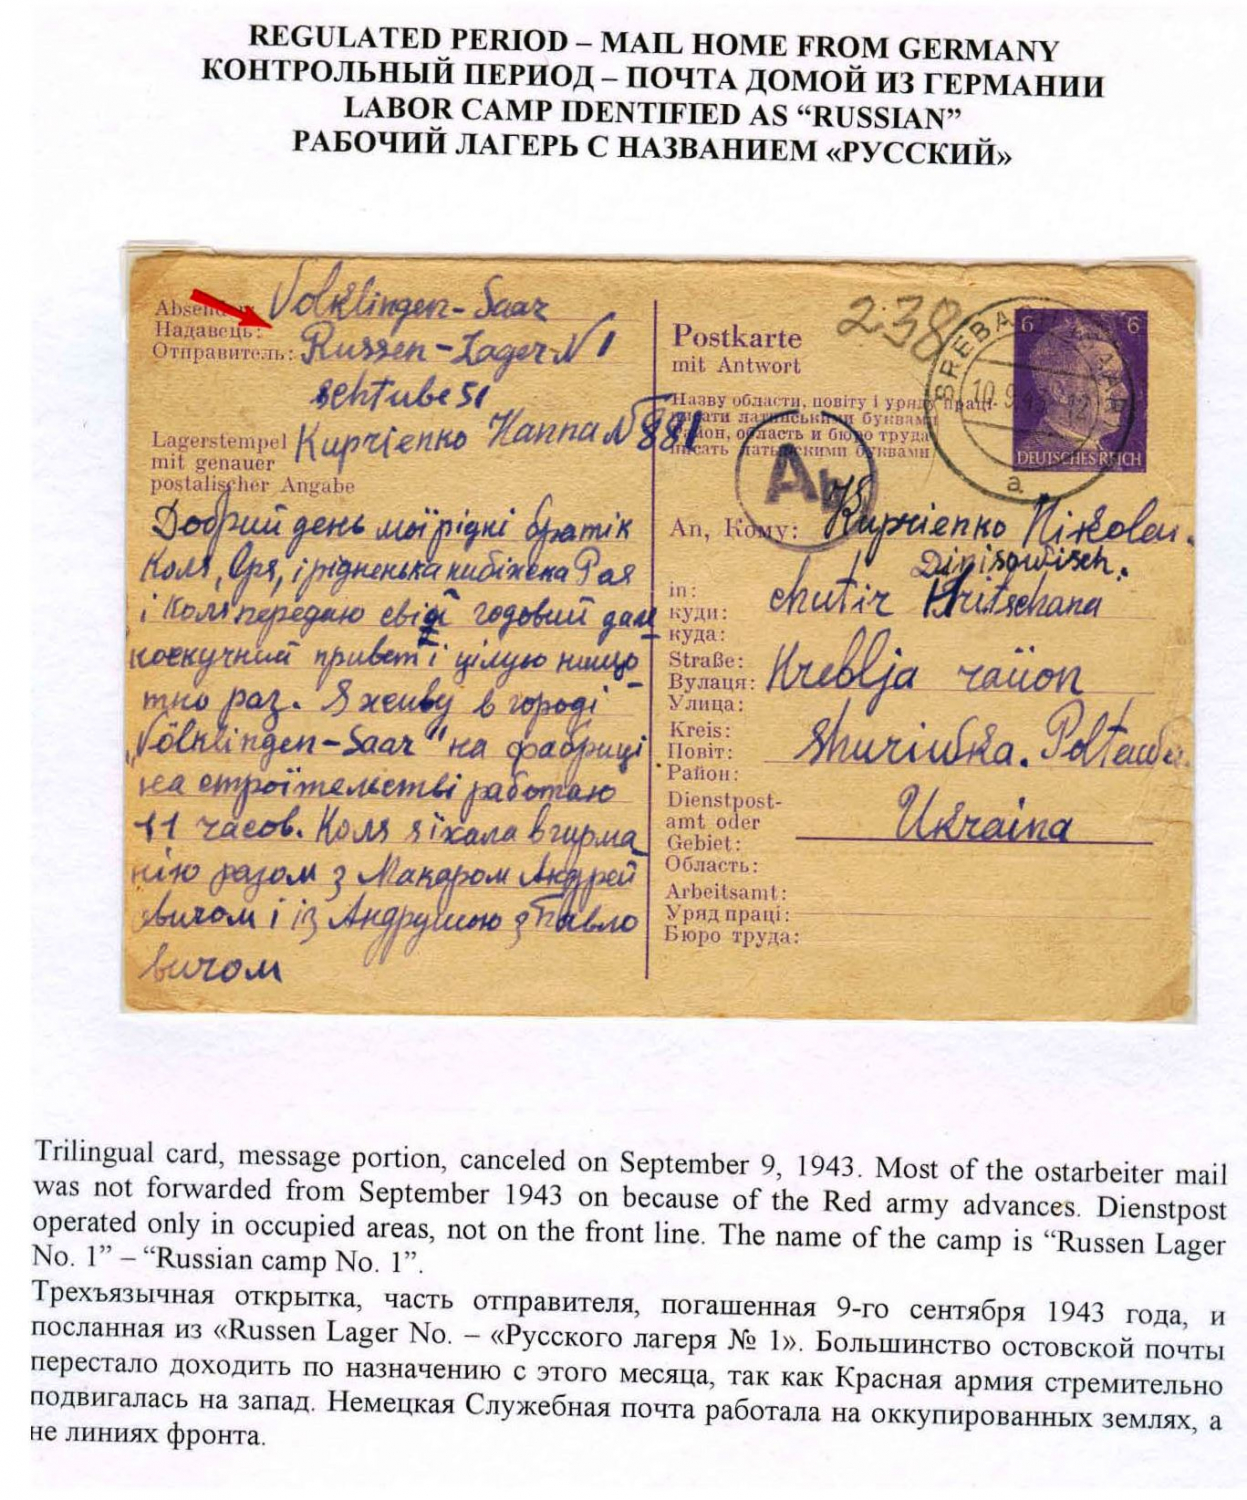 REGULATED PERIOD – MAIL HOME FROM GERMANY
КОНТРОЛЬНЫЙ ПЕРИОД – ПОЧТА ДОМОЙ ИЗ ГЕРМАНИИ
LABOR CAMP IDENTIFIED AS “RUSSIAN”
РАБОЧИЙ ЛАГЕРЬ С НАЗВАНИЕМ «РУССКИЙ»
Volklingen-Saar
Надавець:
Отправитель: Russen-Lager N 1
schtube 51
Lagerstempel
mit genauer
postalischer Angabe
Куприенко Ханна N 881
Добрий день мої рідні братік
Коля, і рідненька Рая
і Коля передаю свій годовий
привет і цілую
раз. Я живу в городі
„Völklingen-Saar“ на фабриці
на строїтельстві работаю
11 часов. Коля я їхала в гирма
нію разом з Макаром Андрей
овичом і із Андрушою з Павло
вичом
Postkarte
mit Antwort
2.38
Назву области, повіту і уряду праці
писати латинськими буквами
Район, область и бюро труда
писать латинскими буквами
Ab
6 6
DEUTSCHES REICH
10.9.43
a
An, Кому: Kuprienko Nikolai
in:
куди:
куда:
chutir Hritschana
Straße:
Вулаця:
Улица:
Kreblja raiion
Kreis:
Повіт:
Район:
Dienstpost-
amt oder
Gebiet:
Область:
Ukraina
Arbeitsamt:
Уряд праці:
Бюро труда:
Trilingual card, message portion, canceled on September 9, 1943. Most of the ostarbeiter mail
was not forwarded from September 1943 on because of the Red army advances. Dienstpost
operated only in occupied areas, not on the front line. The name of the camp is “Russen Lager
No. 1” – “Russian camp No. 1”.
Трехъязычная открытка, часть отправителя, погашенная 9-го сентября 1943 года, и
посланная из «Russen Lager No. – «Русского лагеря № 1». Большинство остовской почты
перестало доходить по назначению с этого месяца, так как Красная армия стремительно
подвигалась на запад. Немецкая Служебная почта работала на оккупированных землях, а
не линиях фронта.